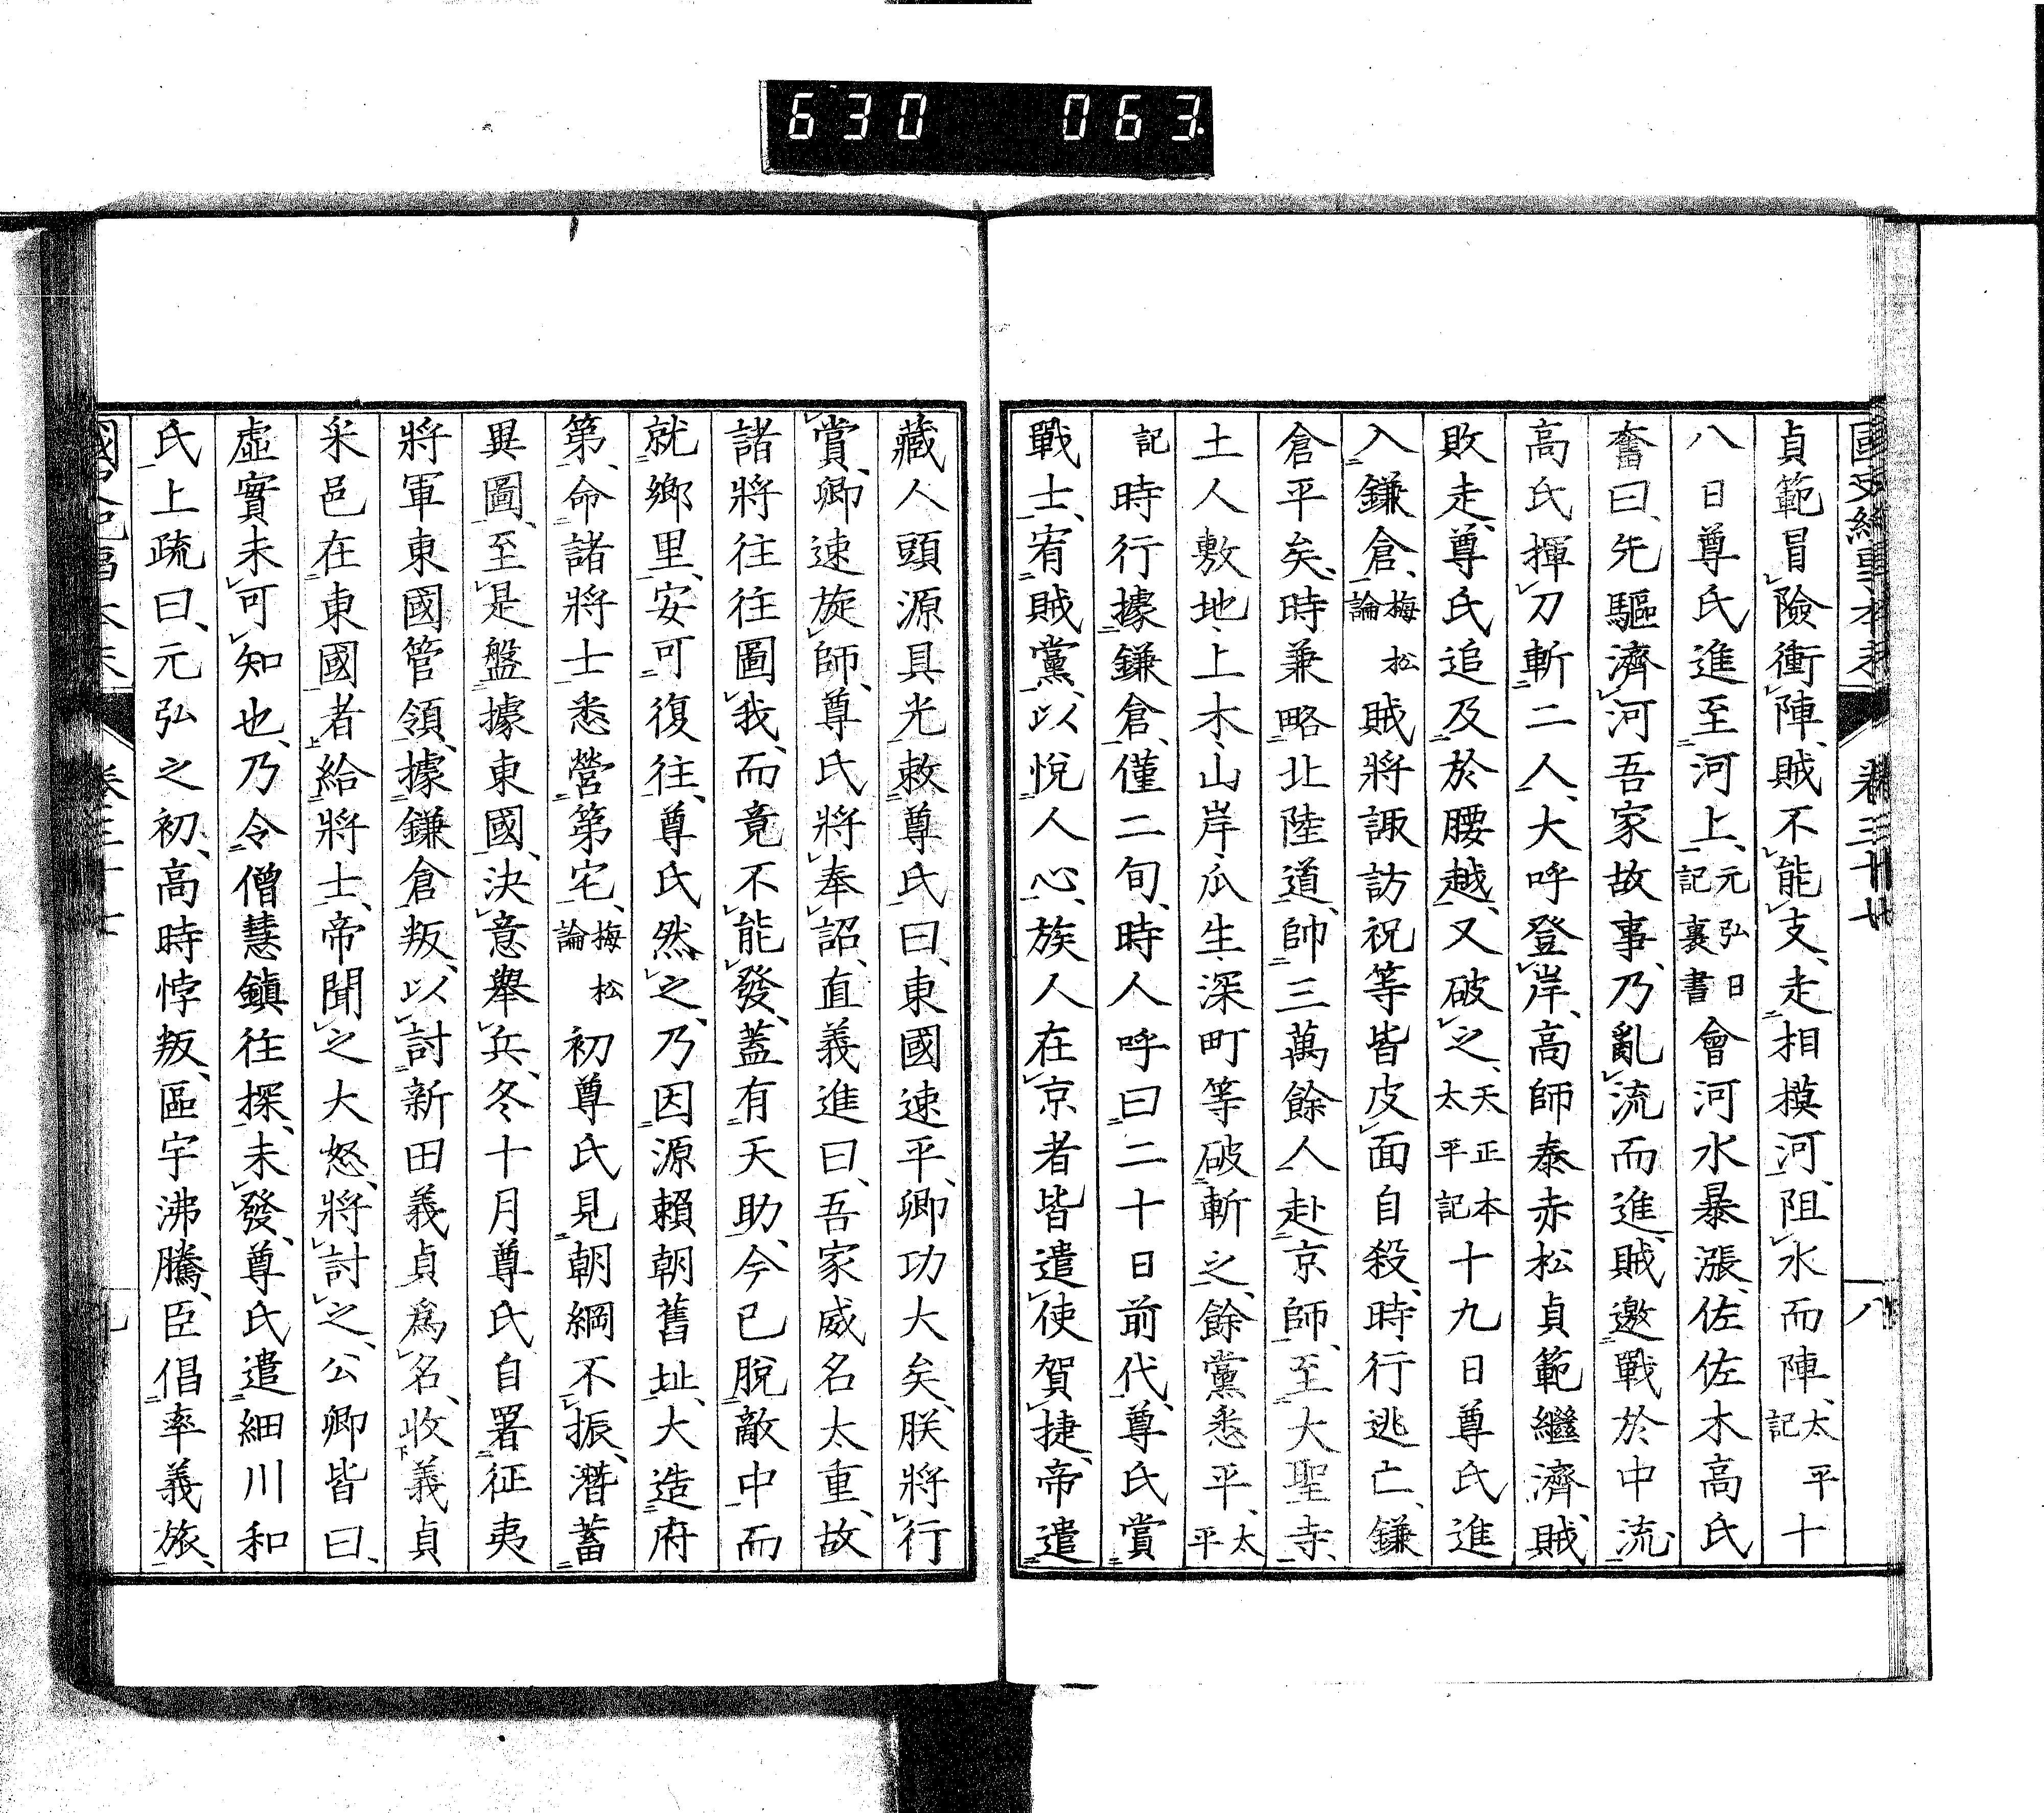 630 063
貞範冒險衝陣、賊不能支、走相模河、阻水而陣、太平記十
八日尊氏進至河上、元弘日記裏書會河水暴漲、佐佐木高氏
奮曰、先驅濟河吾家故事、乃亂流而進、賊邀戰於中流、
高氏揮刀斬二人、大呼登岸、高師泰赤松貞範繼濟、賊
敗走、尊氏追及於腰越、又破之、天正本太平記十九日尊氏進
入鎌倉、梅松論賊將諏訪祝等皆皮面自殺、時行逃亡、鎌
倉平矣、時兼略北陸道、帥三萬餘人赴京師、至大聖寺、
土人敷地、上木、山岸、瓜生、深町等破斬之、餘黨悉平、太平
記時行據鎌倉、僅二旬、時人呼曰二十日前代、尊氏賞
戰士、宥賊黨、以悅人心、族人在京者皆遣使賀捷、帝遣
藏人頭源具光敕尊氏曰、東國速平、卿功大矣、朕將行
賞、卿速旋師、尊氏將奉詔、直義進曰、吾家威名太重、故
諸將往往圖我、而竟不能發、蓋有天助、今已脫敵中而
就鄉里、安可復往、尊氏然之、乃因源賴朝舊址、大造府
第、命諸將士悉營第宅、梅松論初尊氏見朝綱不振、潛蓄
異圖、至是盤據東國、決意舉兵、冬十月尊氏自署征夷
將軍東國管領、據鎌倉叛、以討新田義貞爲名、收義貞
釆邑在東國者給將士、帝聞之大怒、將討之、公卿皆曰、
虛實未可知也、乃令僧慧鎭往探、未發、尊氏遣細川和
氏上疏曰、元弘之初、高時悖叛、區宇沸騰、臣倡率義旅、